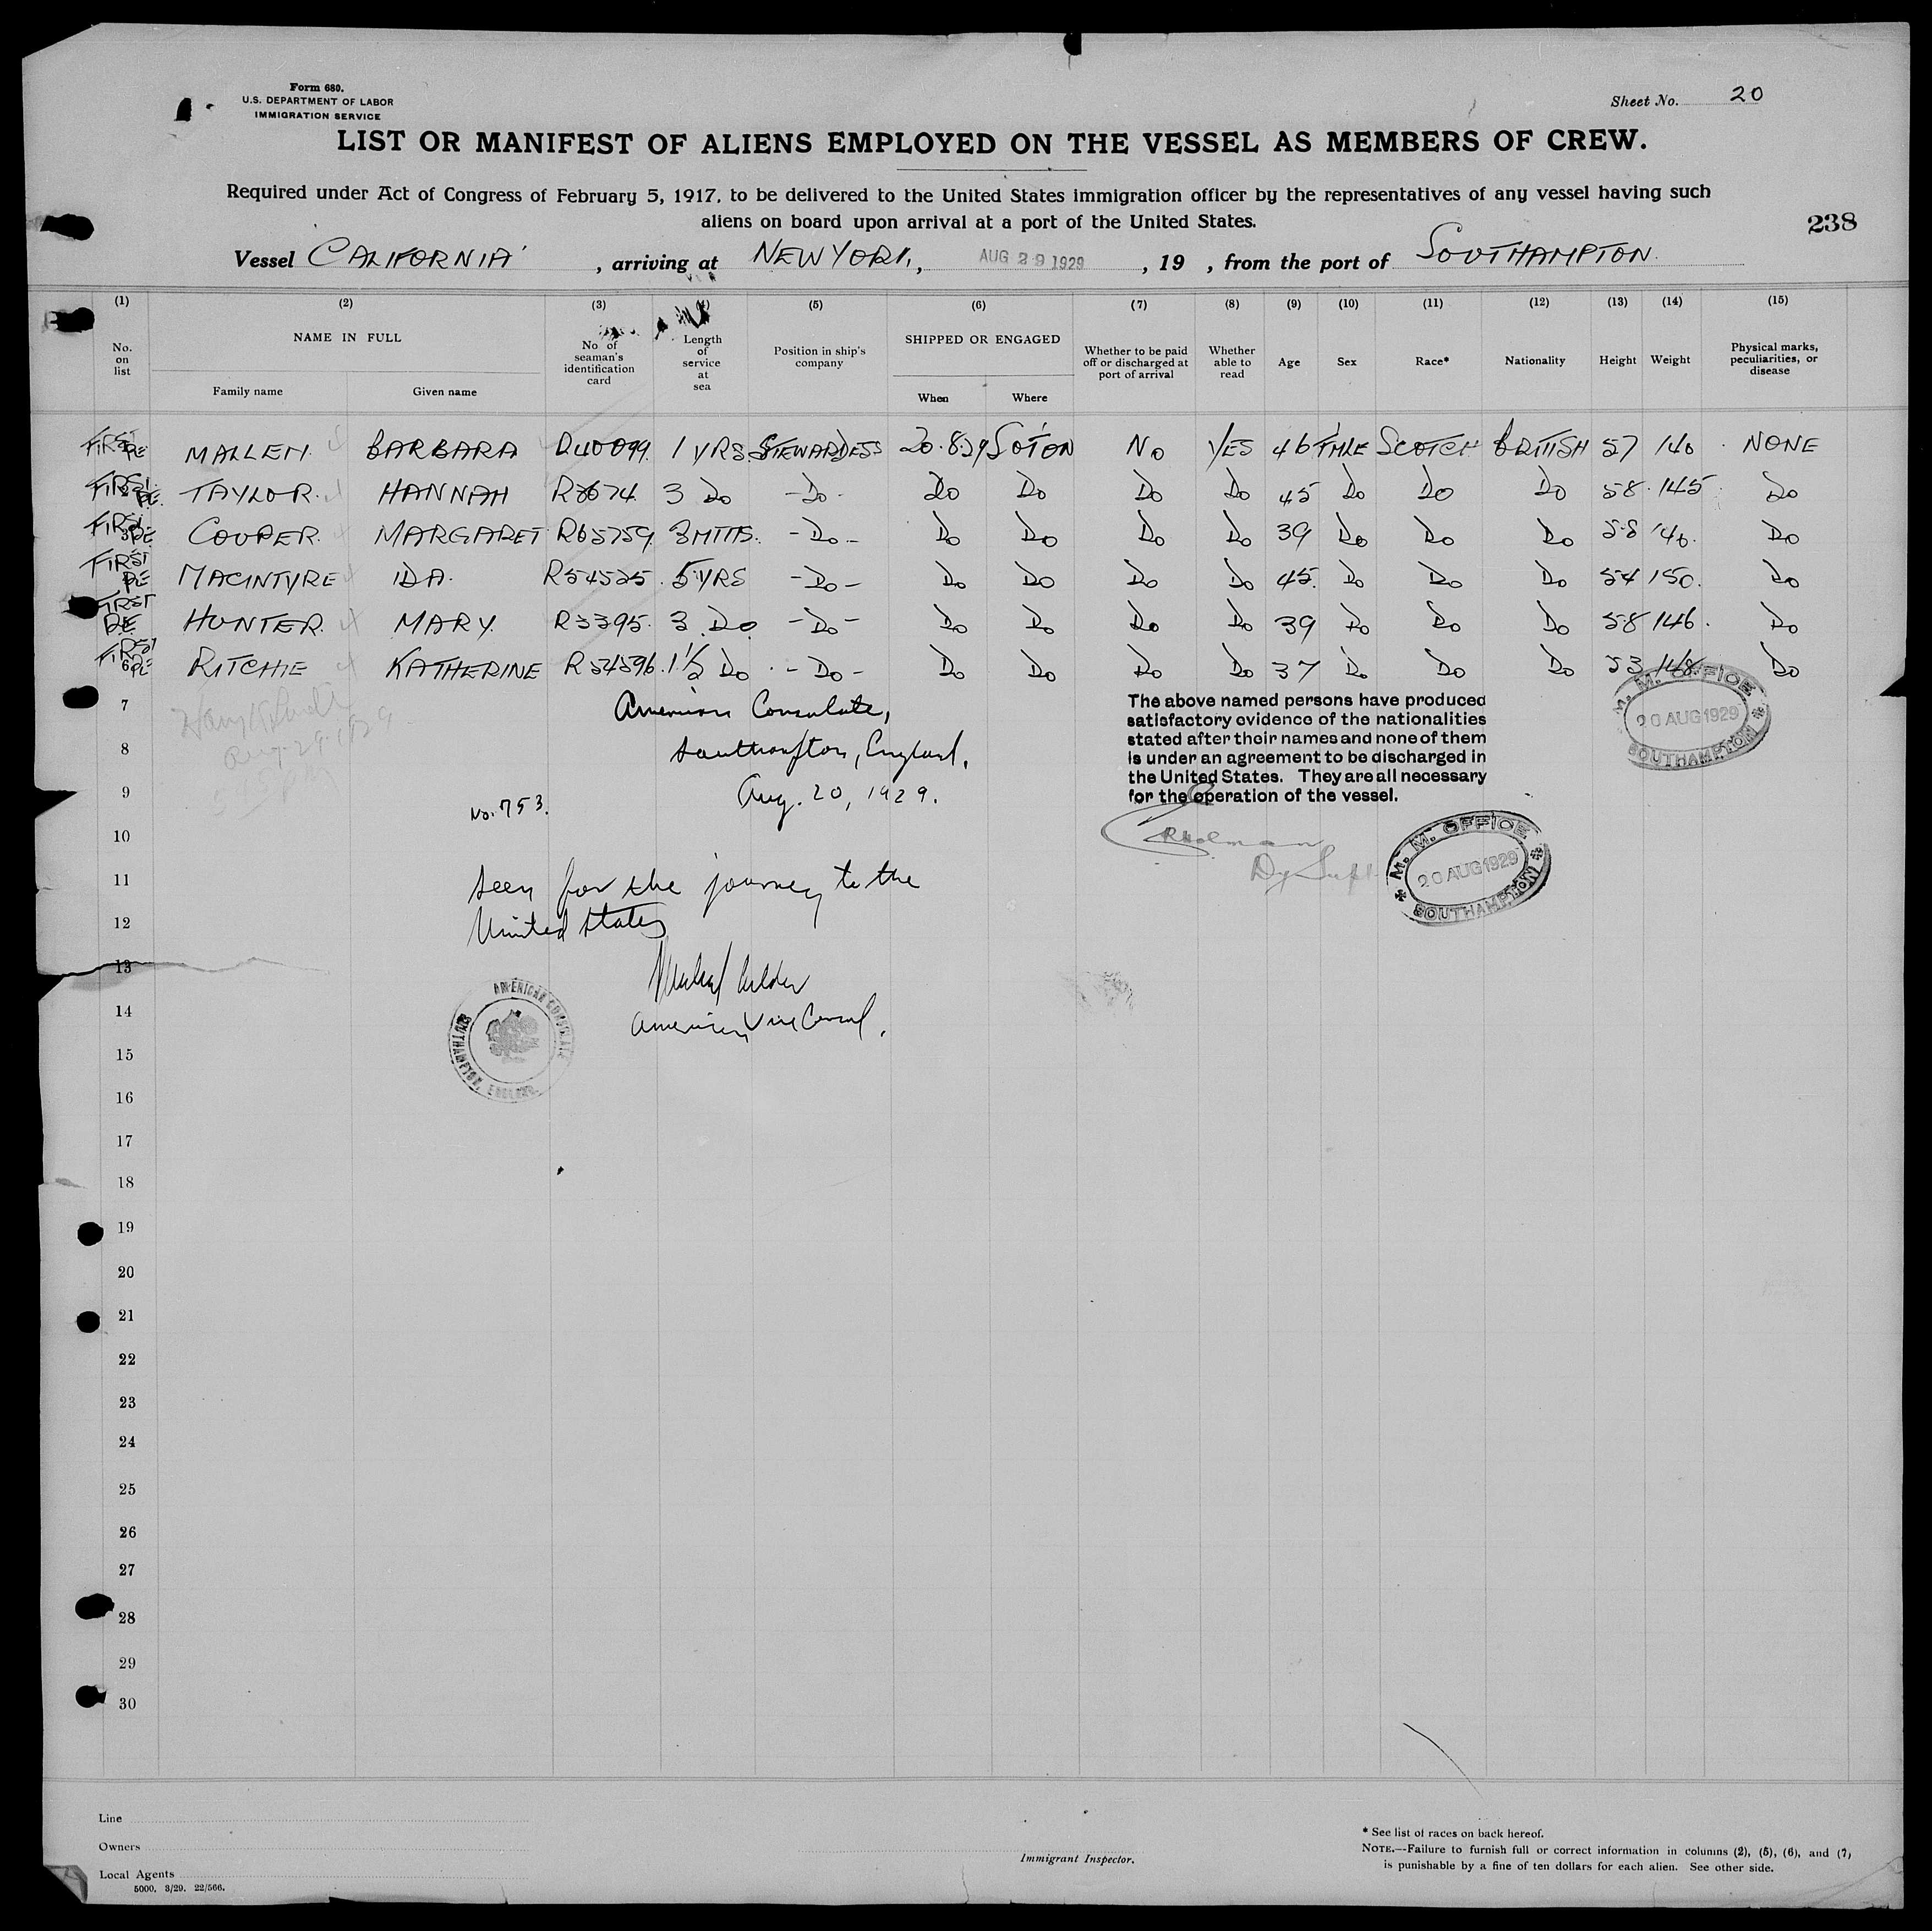 Form 680.
U.S. DEPARTMENT OF LABOR
IMMIGRATION SERVICE
Sheet No. 20
LIST OR MANIFEST OF ALIENS EMPLOYED ON THE VESSEL AS MEMBERS OF CREW.
Required under Act of Congress of February 5, 1917, to be delivered to the United States immigration officer by the representatives of any vessel having such
aliens on board upon arrival at a port of the United States.
238
Vessel CALIFORNIA , arriving at NEW YORK, AUG 29 1929 , 19 , from the port of SOUTHAMPTON.
(1) (2) (3) (4) (5) (6) (7) (8) (9) (10) (11) (12) (13) (14) (15)
No. on list NAME IN FULL Family name Given name No of seaman's identification card Length of service at sea Position in ship's company SHIPPED OR ENGAGED When Where Whether to be paid off or discharged at port of arrival Whether able to read Age Sex Race* Nationality Height Weight Physical marks, peculiarities, or disease
FIRST RE MALLEN. BARBARA R40099. 1 YRS. STEWARDESS 20.8.29 SOTON NO YES 46 FMLE SCOTCH BRITISH 57 140 NONE
FIRST RE. TAYLOR. HANNAH 3 Do -Do- Do Do Do Do 45 Do Do Do 58. 145 Do
FIRST RE COUPER. MARGARET R65759. 3 MTHS. -Do- Do Do Do Do 39 Do Do Do 58 140. Do
FIRST RE MACINTYRE IDA. R54525. 5 YRS -Do- Do Do Do Do 45. Do Do Do 54 150. Do
FIRST RE HUNTER. MARY. R3395. 3 Do -Do- Do Do Do Do 39 Do Do Do 58 146. Do
FIRST 6 RE RITCHIE KATHERINE R54596. 1½ Do -Do- Do Do Do Do 37 Do Do Do 53 148. Do
7
American Consulate,
The above named persons have produced
satisfactory evidence of the nationalities
stated after their names and none of them
is under an agreement to be discharged in
the United States. They are all necessary
for the operation of the vessel.
M. M. OFFICE
20 AUG 1929
SOUTHAMPTON
Aug. 29. 1929
8
Southampton, England.
9
Aug. 20, 1929.
No. 753.
10
Dy Supt
M. M. OFFICE
20 AUG 1929
SOUTHAMPTON
11
Seen for the journey to the
12
United States
13
14
American Vice Consul.
AMERICAN CONSULATE
SOUTHAMPTON, ENGLAND.
15
16
17
18
19
20
21
22
23
24
25
26
27
28
29
30
Line
Owners
Local Agents
5000. 3/29. 22/566.
Immigrant Inspector.
* See list of races on back hereof.
NOTE.—Failure to furnish full or correct information in columns (2), (5), (6), and (7,
is punishable by a fine of ten dollars for each alien. See other side.